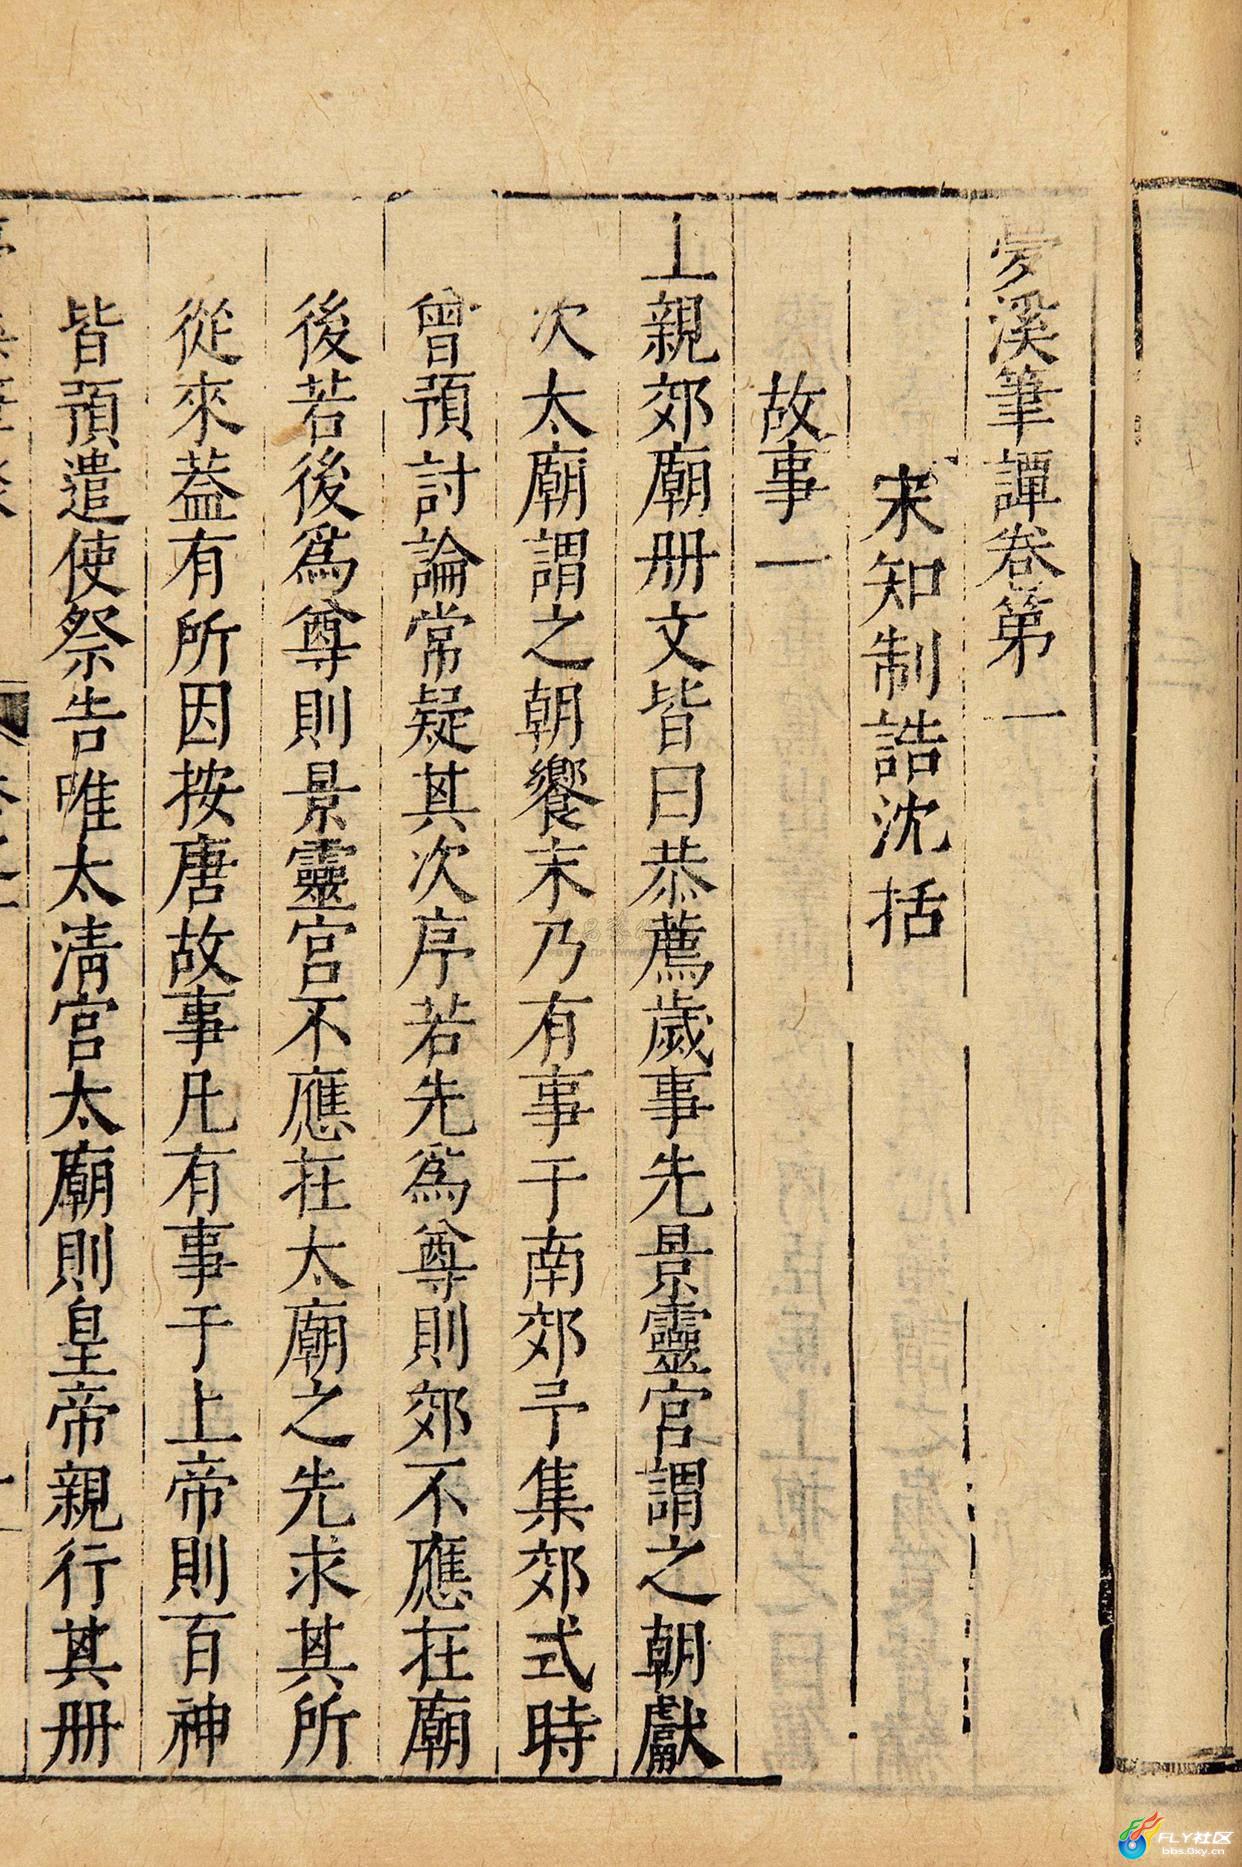 夢溪筆譚卷第一
宋知制誥沈括
故事一
上親郊廟册文皆曰恭薦歲事先景靈宮謂之朝獻
次太廟謂之朝饗末乃有事于南郊予集郊式時
曾預討論常疑其次序若先為尊則郊不應在廟
後若後為尊則景靈宮不應在太廟之先求其所
從來蓋有所因按唐故事凡有事于上帝則百神
皆預遣使祭告唯太清宮太廟則皇帝親行其册
FLY社区
bbs.0xy.cn